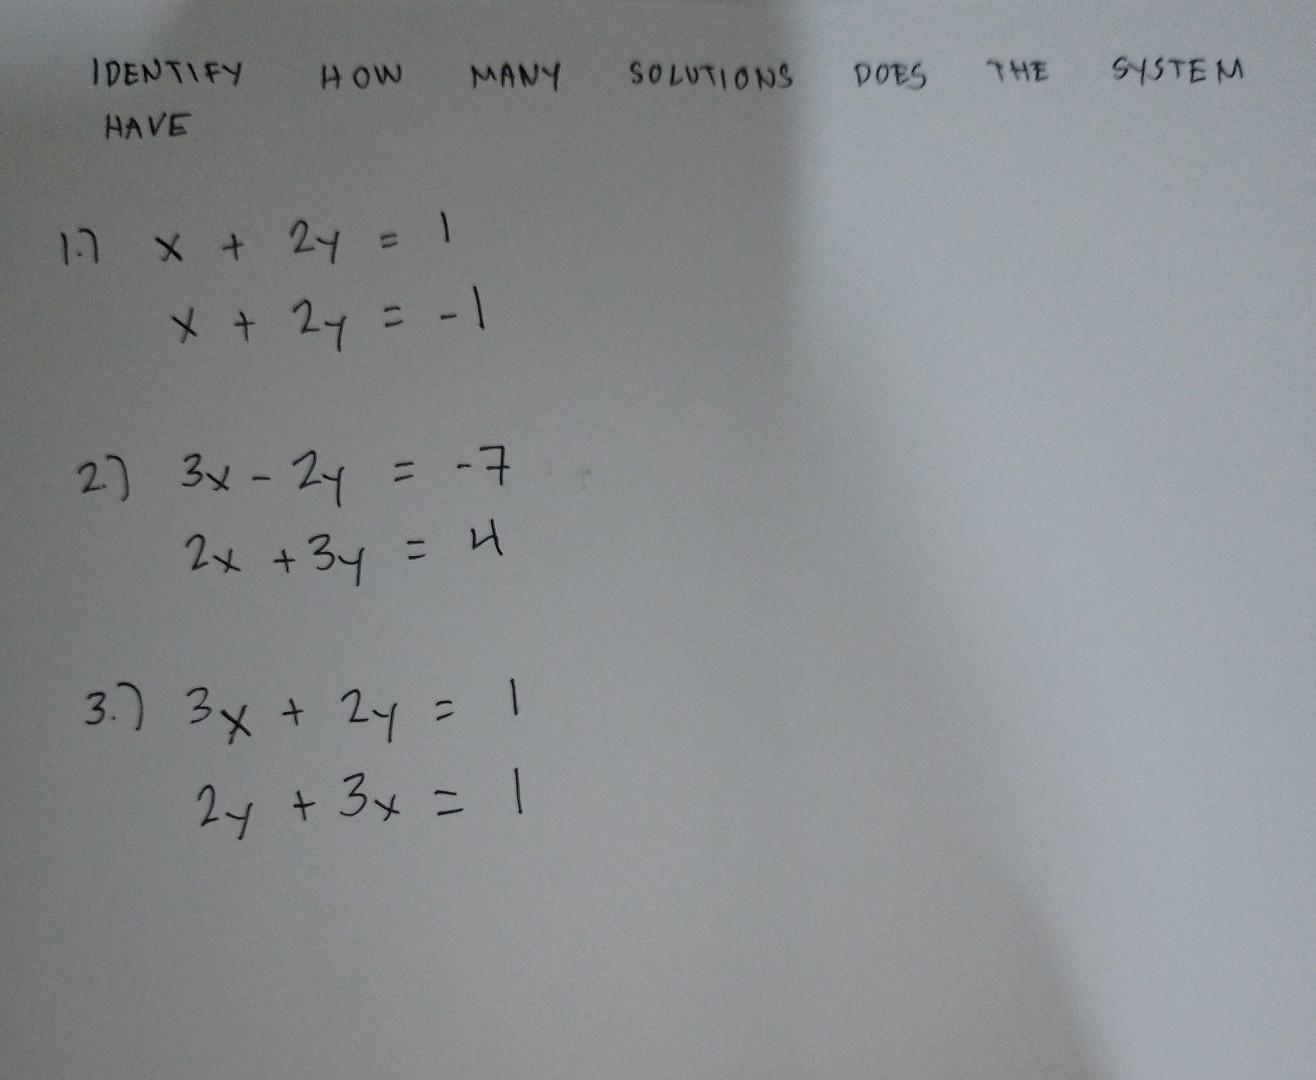 IDENTIFY HOW MANY SOLUTIONS DOES THE SYSTEM
HAVE
1.) x + 2y = 1
x + 2y = -1
2.) 3x - 2y = -7
2x + 3y = 4
3.) 3x + 2y = 1
2y + 3x = 1